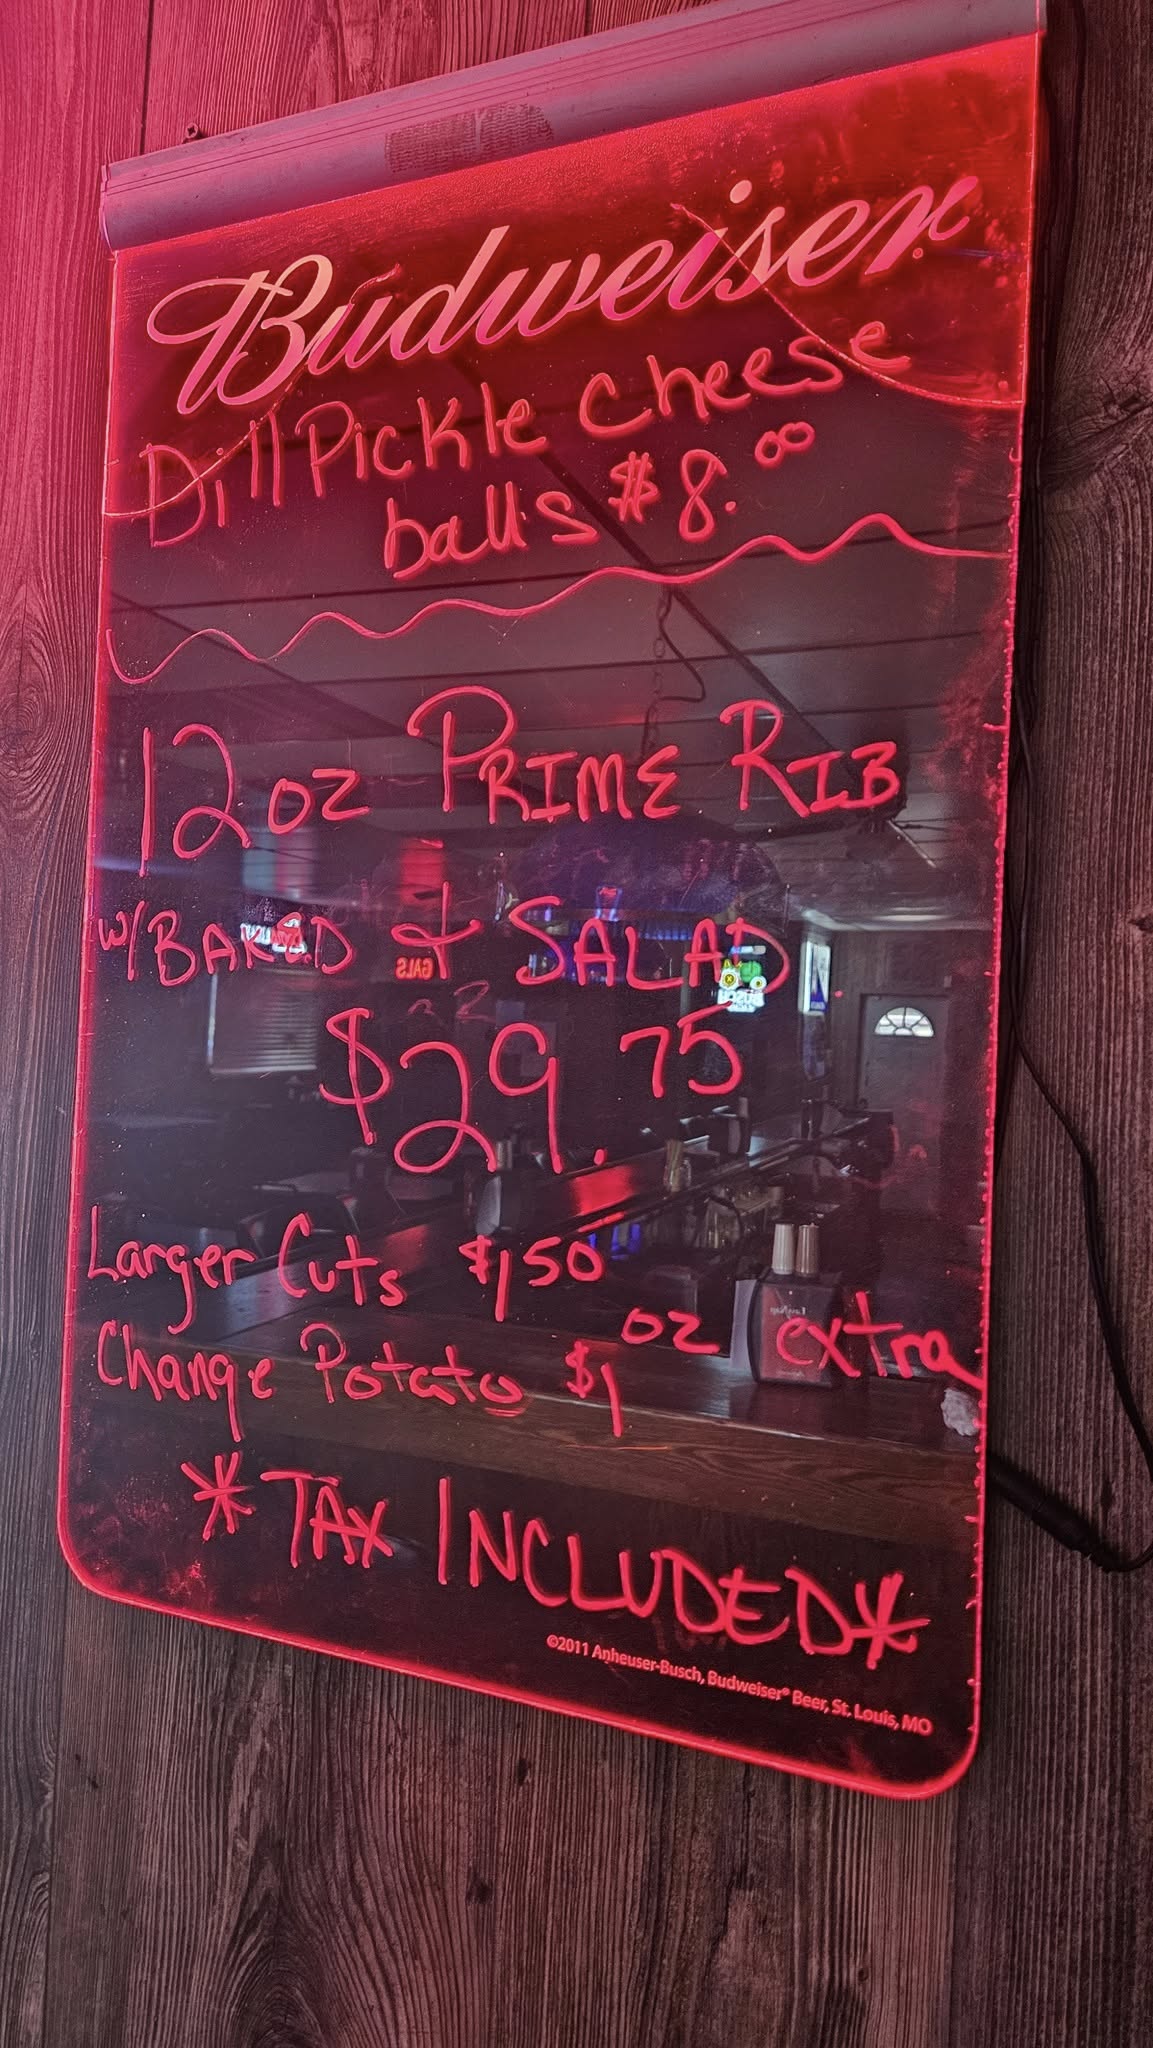 Budweiser
Dill Pickle Cheese
balls $8.00
12 oz PRIME RIB
w/ BAKED & SALAD
$29.75
Larger Cuts $1.50 oz extra
Change Potato $1
*TAX INCLUDED*
©2011 Anheuser-Busch, Budweiser® Beer, St. Louis, MO